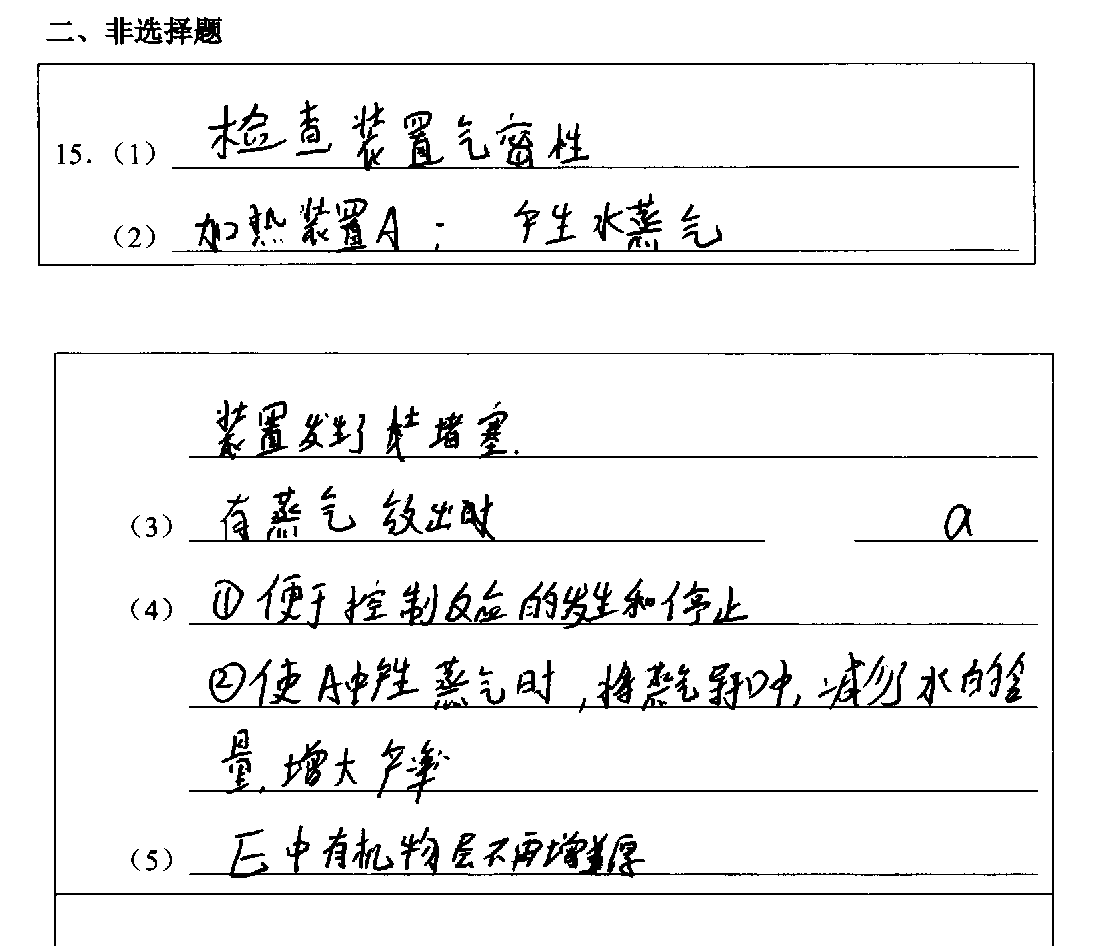 二、非选择题
15.（1）检查装置气密性
（2）加热装置A； 产生水蒸气
装置发生了堵塞.
（3）有蒸气放出时 a
（4）①便于控制反应的发生和停止
②使A中产生蒸气时，将蒸气导中，减少了水的含
量，增大产率
（5）E中有机物层不再增厚